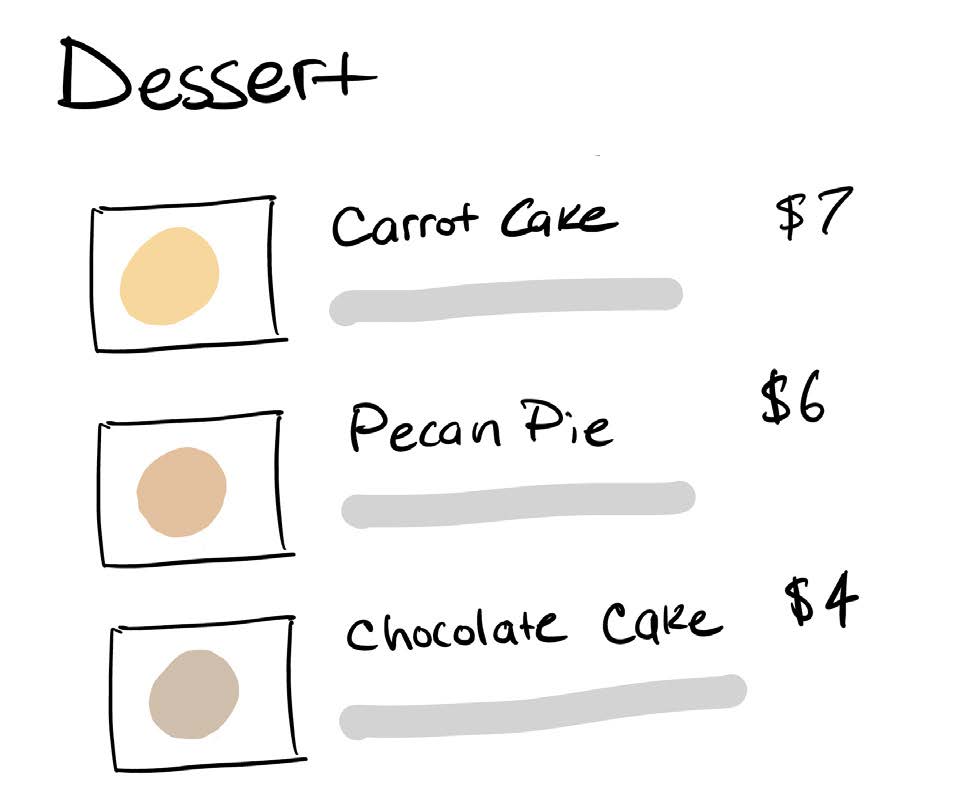 Dessert
Carrot Cake $7
Pecan Pie $6
Chocolate Cake $4